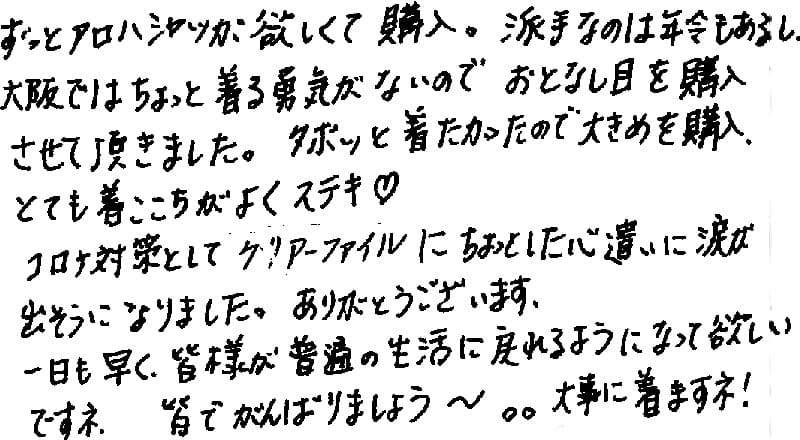 ずっとアロハシャツが欲しくて購入。派手なのは年令もあるし、
大阪ではちょっと着る勇気がないのでおとなし目を購入
させて頂きました。ダボッと着たかったので大きめを購入、
とても着ごこちがよくステキ♡
コロナ対策としてクリアーファイルにちょっとした心遣いに涙が
出そうになりました。ありがとうございます、
一日も早く、皆様が普通の生活に戻れるようになって欲しい
ですネ、 皆でがんばりましよう〜。。大事に着ますネ!